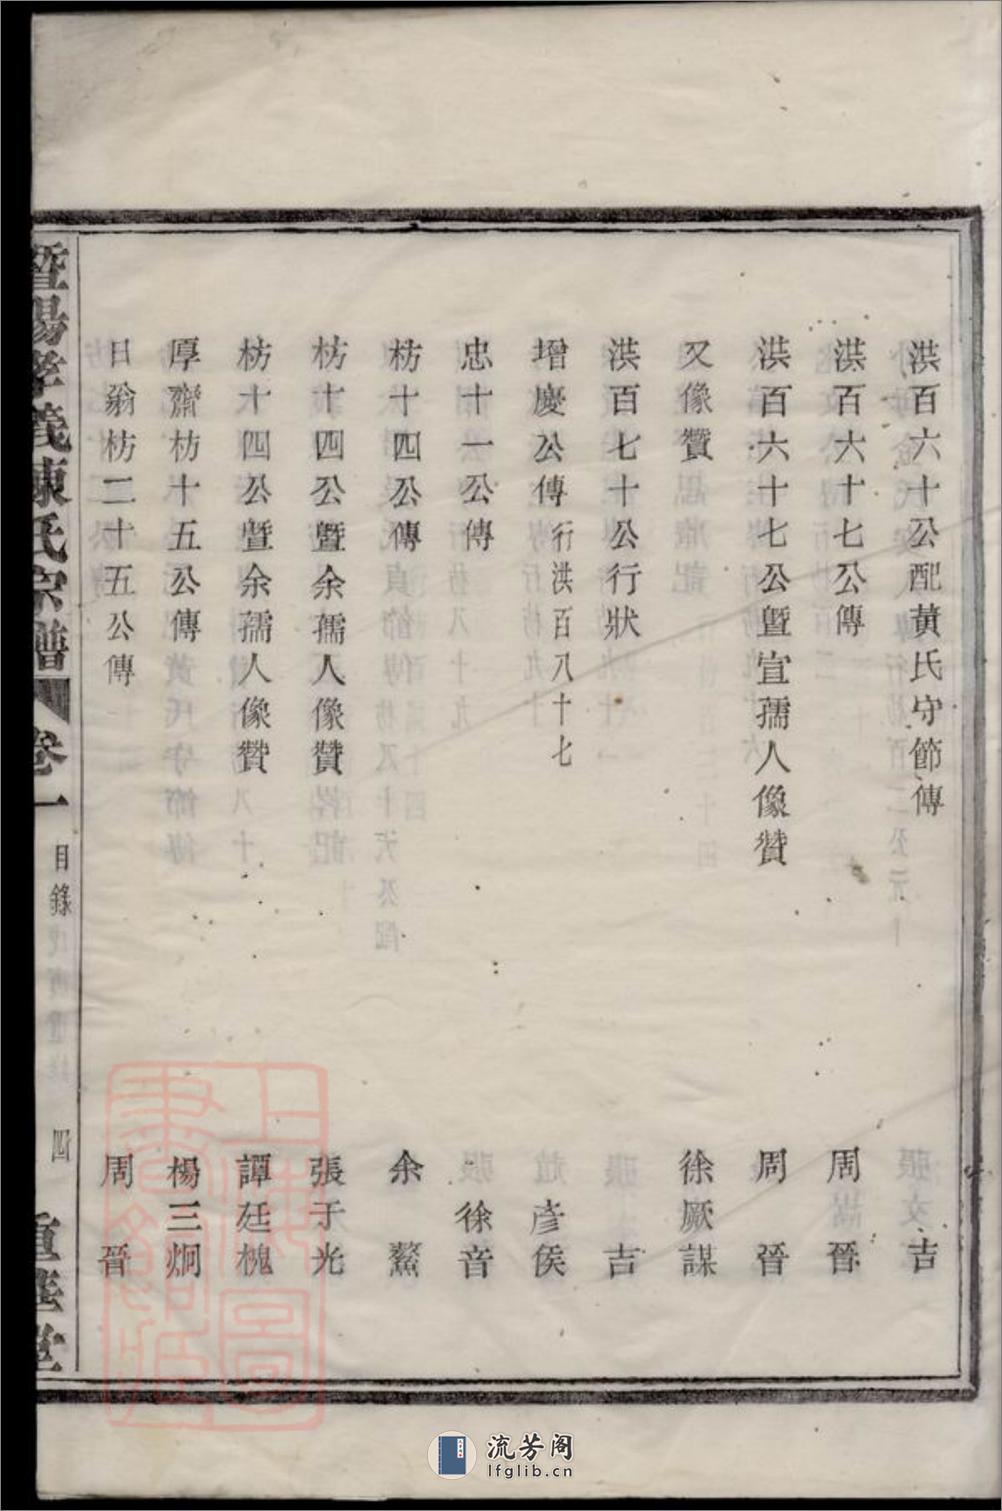 洪百六十公配黃氏守節傳　吉
洪百六十七公傳　周晉
洪百六十七公曁宜孺人像贊　周晉
又像贊　徐厥謀
洪百七十公行狀　吉
增慶公傳行洪百八十七　彥侯
忠十一公傳　徐音
枋十四公傳　余鰲
枋十四公曁余孺人像贊　張于光
枋十四公曁余孺人像贊　譚廷槐
厚齋枋十五公傳　楊三炯
日翁枋二十五公傳　周晉
曁陽孝義陳氏宗譜　卷一　目錄　四
上海圖書館藏
流芳阁
lfglib.cn